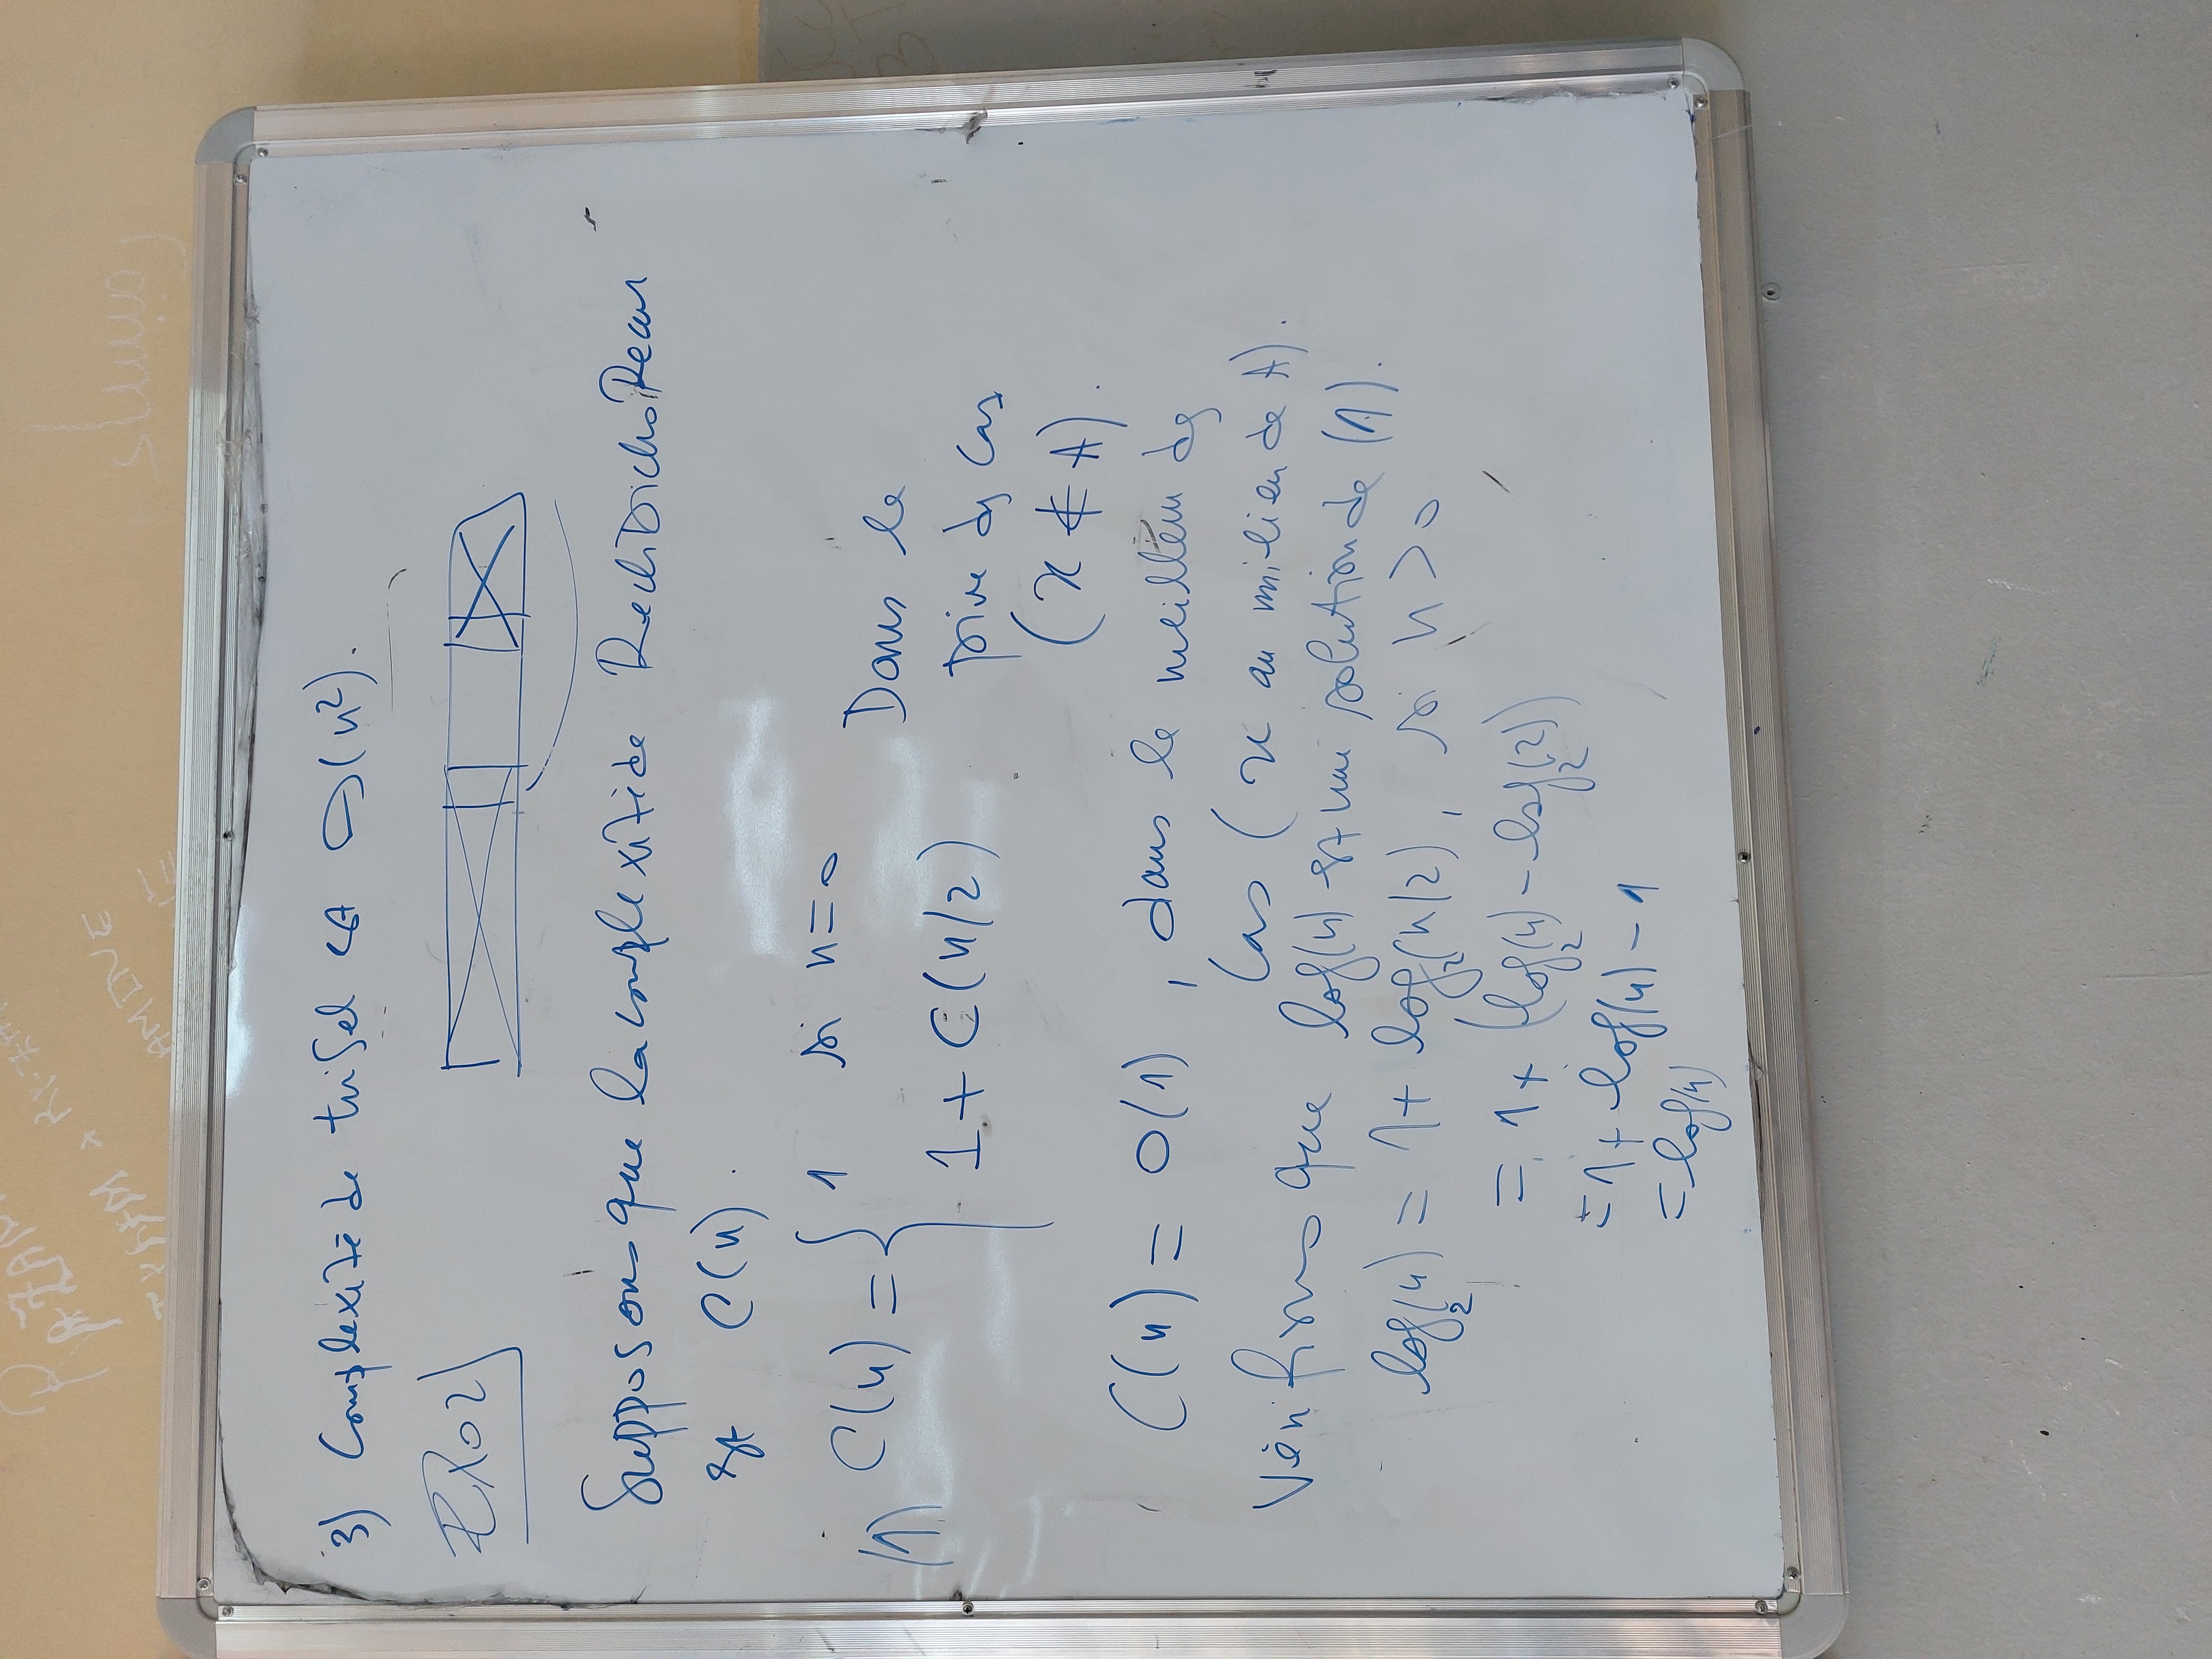 RAZAN
AMINE
3) Complexité de triSel est O(n²).
EXO2
Supposons que la complexité de RechDichoRecur
est C(n).
(1) C(n) = { 1 si n=0
1 + C(n/2) Dans le
pire des cas
(x ∉ A).
C(n) = O(1), dans le meilleur des
cas (x au milieu de A).
Vérifions que log(n) est une solution de (1).
log₂(n) = 1 + log₂(n/2), si n > 0
= 1 + (log₂(n) - log₂(2))
= 1 + log(n) - 1
= log(n)